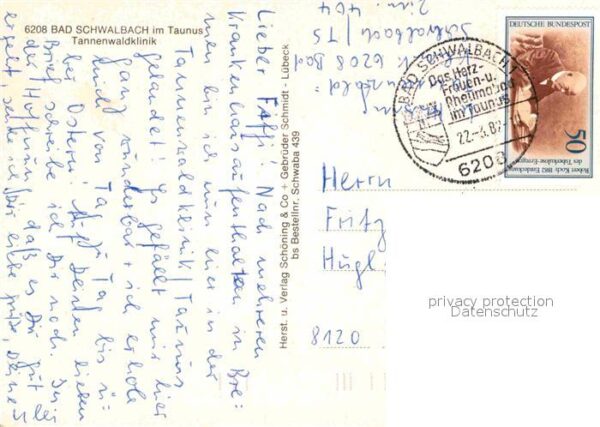 6208 BAD SCHWALBACH im Taunus
Tannenwaldklinik
Lieber Faffi! Nach mehreren
Krankenhausaufenthalten in Bre=
men bin ich nun hier in der
Tannenwaldklinik/Taunus
gelandet! Es gefällt mir hier
ganz wunderbar + ich erhole
mich von Tag zu Tag bis zu=
bei Ostern! Auf Deinen lieben
Brief schreibe ich Dir noch. In
der Hoffnung, daß es Dir gut
ergeht, sende ich Dir liebe Grüße, Deine
Herst. u. Verlag Schöning & Co + Gebrüder Schmidt - Lübeck
bs Bestellnr. Schwaba 439
6208 Bad
Schwalbach/TS
404
BAD SCHWALBACH 1
Das Herz-
Frauen-u.
Rheumabad
im Taunus
22.-3.82
6208
DEUTSCHE BUNDESPOST
50
Robert Koch 1882 Entdeckung
des Tuberkulose-Erregers
Herrn
Fritz
Hugl
8120
privacy protection
Datenschutz